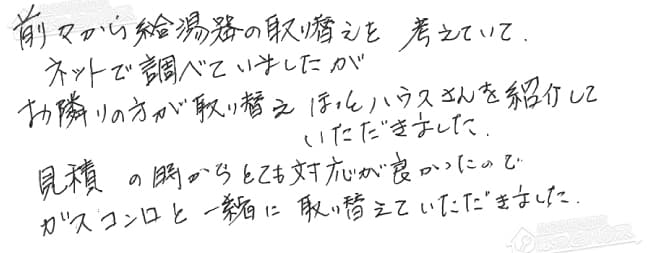 前々から給湯器の取り替えを 考えていて.
ネットで調べていましたが
お隣りの方が取り替え ほっとハウスさんを紹介して
いただきました.
見積 の時からとても対応が良かったので
ガスコンロと一緒に 取り替えていただきました.